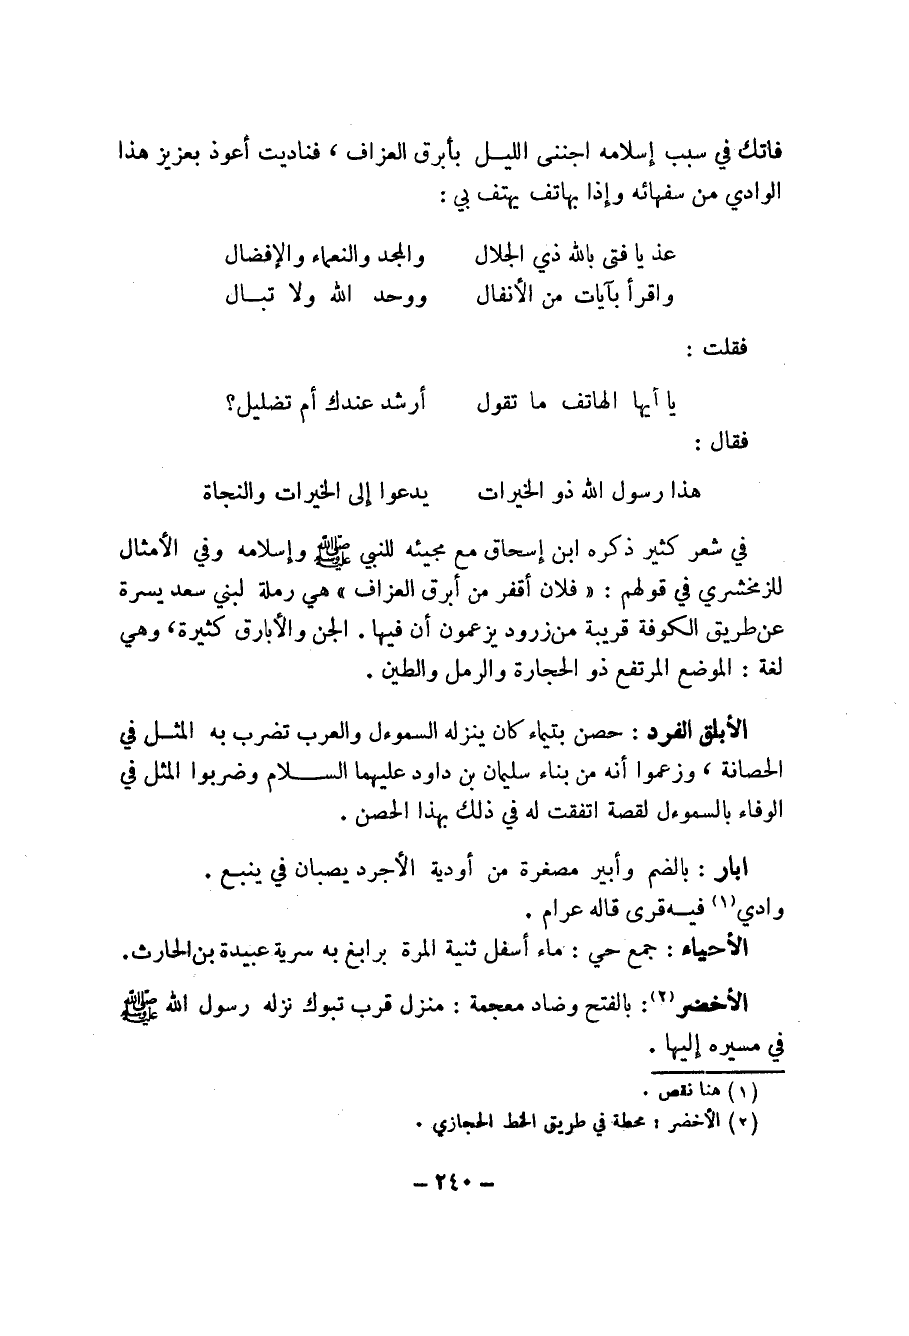 فاتك في سبب إسلامه اجنني الليل بأبرق العزاف ، فناديت أعوذ بعزيز هذا
الوادي من سفهائه وإذا بهاتف يهتف بي :
عذ يا فتى بالله ذي الجلال والمجد والنعماء والإفضال
واقرأ بآيات من الأنفال ووحد الله ولا تبال
فقلت :
يا أيها الهاتف ما تقول أرشد عندك أم تضليل؟
فقال :
هذا رسول الله ذو الخيرات يدعوا إلى الخيرات والنجاة
في شعر كثير ذكره ابن إسحاق مع مجيئه للنبي ﷺ وإسلامه وفي الأمثال
للزمخشري في قولهم : « فلان أقفر من أبرق العزاف » هي رملة لبني سعد يسرة
عن طريق الكوفة قريبة من زرود يزعمون أن فيها . الجن والأبارق كثيرة، وهي
لغة : الموضع المرتفع ذو الحجارة والرمل والطين .
الأبلق الفرد : حصن بتيماء كان ينزله السموءل والعرب تضرب به المثل في
الحصانة ، وزعموا أنه من بناء سليمان بن داود عليهما السلام وضربوا المثل في
الوفاء بالسموءل لقصة اتفقت له في ذلك بهذا الحصن .
ابار : بالضم وأبير مصغرة من أودية الأجرد يصبان في ينبع .
وادي(١) فيه قرى قاله عرام .
الأحياء : جمع حي : ماء أسفل ثنية المرة برابغ به سرية عبيدة بن الحارث.
الأخضر(٢): بالفتح وضاد معجمة : منزل قرب تبوك نزله رسول الله ﷺ
في مسيره إليها .
(١) هنا نقص .
(٢) الأخضر : محطة في طريق الخط الحجازي .
– ٢٤٠ –